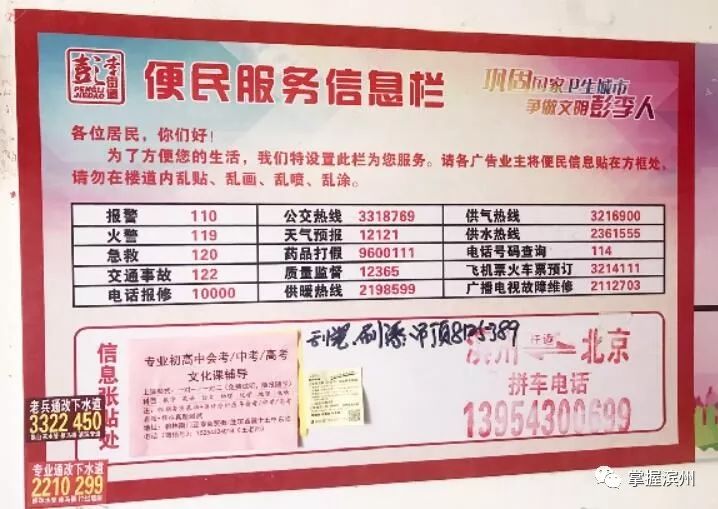 彭李街道
PENGLI JIEDAO
便民服务信息栏
巩固国家卫生城市
争做文明彭李人
各位居民，你们好！
为了方便您的生活，我们特设置此栏为您服务。请各广告业主将便民信息贴在方框处，
请勿在楼道内乱贴、乱画、乱喷、乱涂。
报警 110 公交热线 3318769 供气热线 3216900
火警 119 天气预报 12121 供水热线 2361555
急救 120 药品打假 9600111 电话号码查询 114
交通事故 122 质量监督 12365 飞机票火车票预订 3214111
电话报修 10000 供暖热线 2198599 广播电视故障维修 2112703
信息张贴处
专业初高中会考/中考/高考
文化课辅导
刷漆 吊顶
滨州 往返 北京
拼车电话
13954300699
老兵通改下水道
3322 450
专业通改下水道
2210 299
掌握滨州